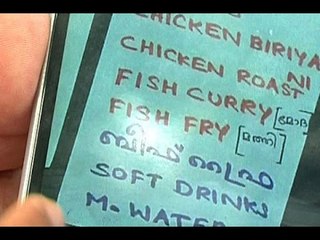 CHICKEN BIRIYA
NI
CHICKEN ROAST
FISH CURRY [മോദ]
FISH FRY [മത്തി]
ബീഫ് ഫ്രൈ
SOFT DRINKS
M. WATER